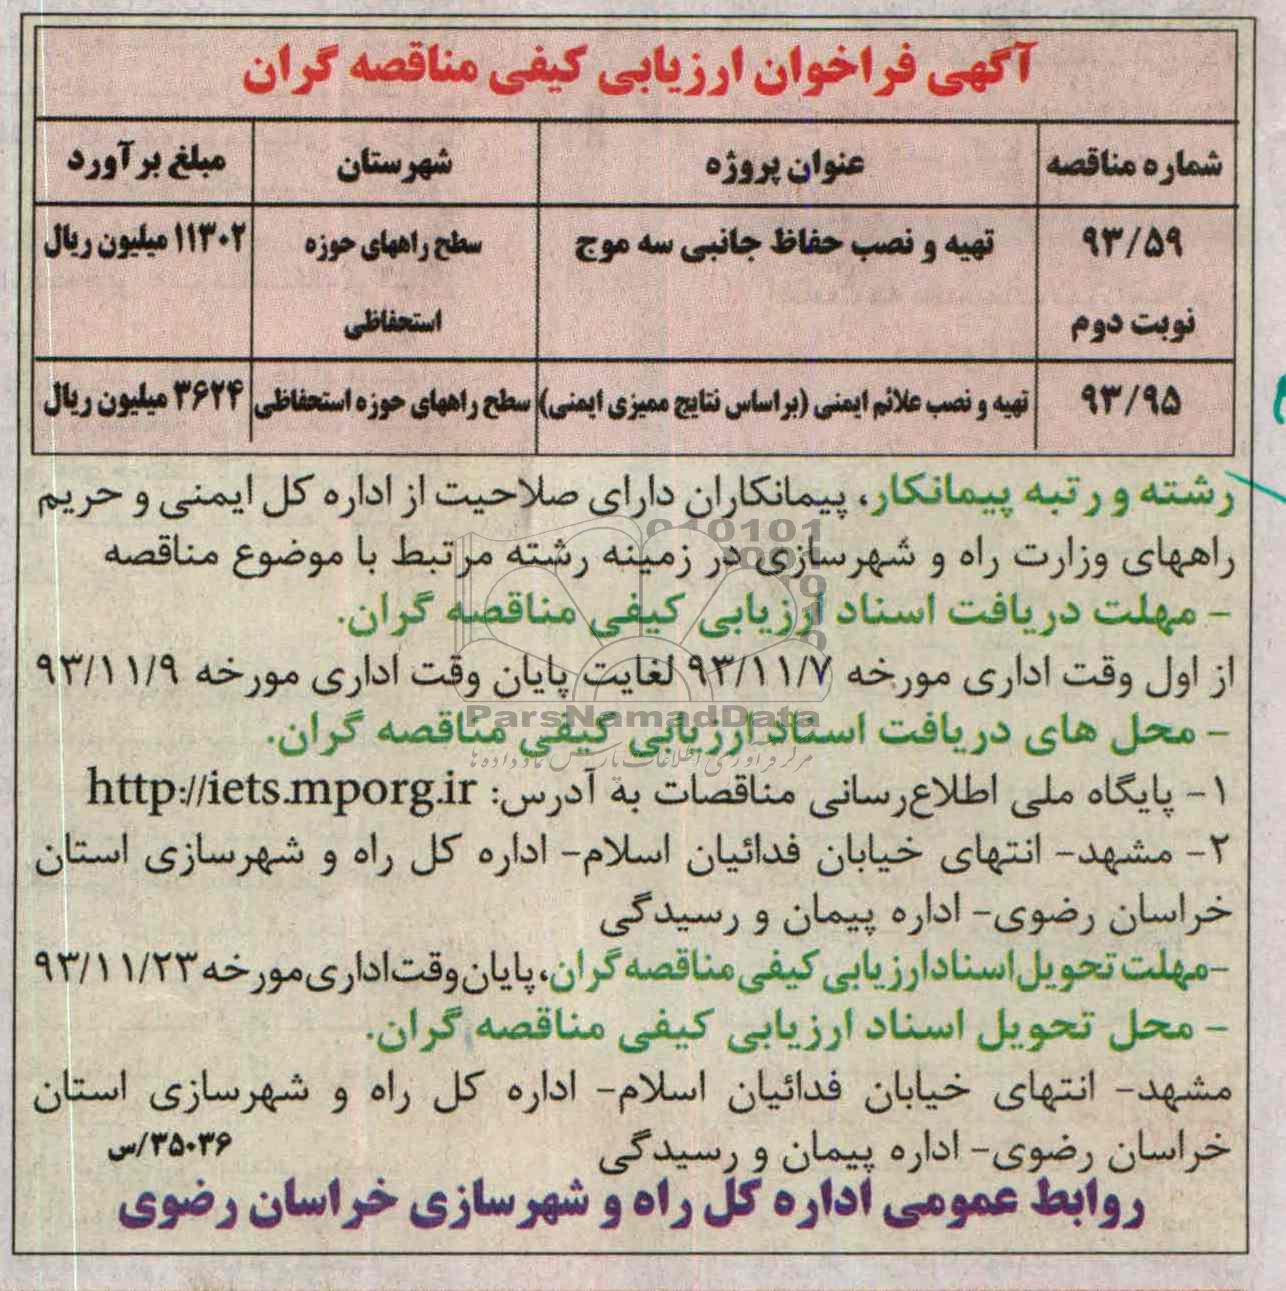 آگهی فراخوان ارزیابی کیفی مناقصه گران
شماره مناقصه عنوان پروژه شهرستان مبلغ برآورد
۹۳/۵۹ تهیه و نصب حفاظ جانبی سه موج سطح راههای حوزه ۱۱۳۰۲ میلیون ریال
نوبت دوم استحفاظی
۹۳/۹۵ تهیه و نصب علائم ایمنی (براساس نتایج ممیزی ایمنی) سطح راههای حوزه استحفاظی ۳۶۲۴ میلیون ریال
رشته و رتبه پیمانکار، پیمانکاران دارای صلاحیت از اداره کل ایمنی و حریم
راههای وزارت راه و شهرسازی در زمینه رشته مرتبط با موضوع مناقصه
- مهلت دریافت اسناد ارزیابی کیفی مناقصه گران.
از اول وقت اداری مورخه ۹۳/۱۱/۷ لغایت پایان وقت اداری مورخه ۹۳/۱۱/۹
- محل های دریافت اسناد ارزیابی کیفی مناقصه گران.
۱- پایگاه ملی اطلاع‌رسانی مناقصات به آدرس: http://iets.mporg.ir
۲- مشهد- انتهای خیابان فدائیان اسلام- اداره کل راه و شهرسازی استان
خراسان رضوی- اداره پیمان و رسیدگی
-مهلت تحویل اسناد ارزیابی کیفی مناقصه گران، پایان وقت اداری مورخه ۹۳/۱۱/۲۳
- محل تحویل اسناد ارزیابی کیفی مناقصه گران.
مشهد- انتهای خیابان فدائیان اسلام- اداره کل راه و شهرسازی استان
خراسان رضوی- اداره پیمان و رسیدگی ۳۵۰۳۶/س
روابط عمومی اداره کل راه و شهرسازی خراسان رضوی
ParsNamadData